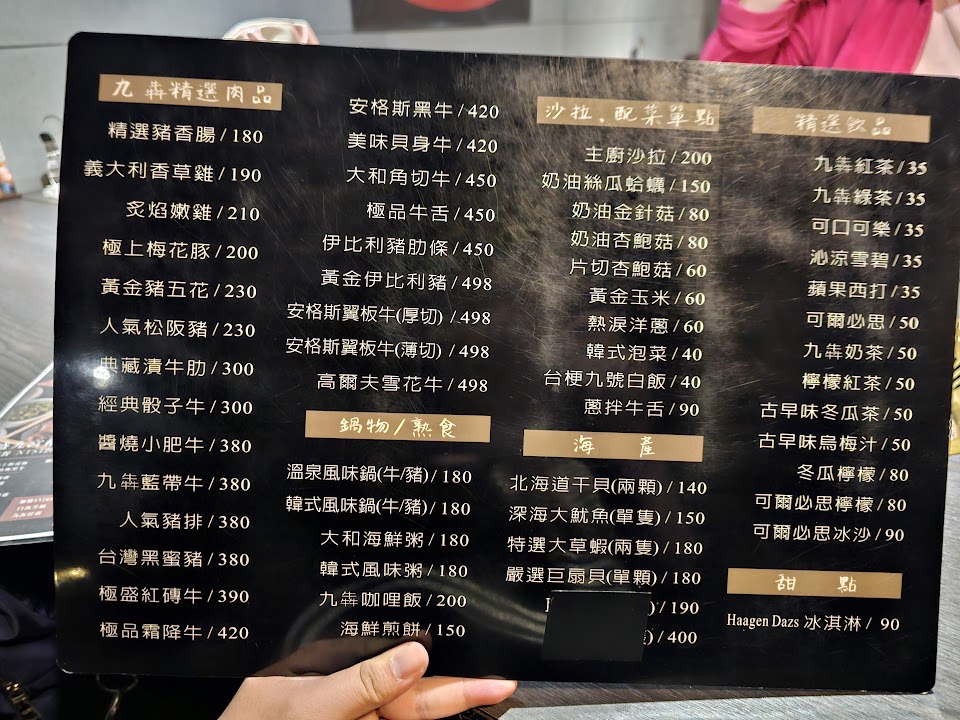 九犇精選肉品
精選豬香腸/180
義大利香草雞/190
炙焰嫩雞/210
極上梅花豚/200
黃金豬五花/230
人氣松阪豬/230
典藏漬牛肋/300
經典骰子牛/300
醬燒小肥牛/380
九犇藍帶牛/380
人氣豬排/380
台灣黑蜜豬/380
極盛紅磚牛/390
極品霜降牛/420
安格斯黑牛/420
美味貝身牛/420
大和角切牛/450
極品牛舌/450
伊比利豬肋條/450
黃金伊比利豬/498
安格斯翼板牛(厚切)/498
安格斯翼板牛(薄切)/498
高爾夫雪花牛/498
鍋物/熟食
溫泉風味鍋(牛/豬)/180
韓式風味鍋(牛/豬)/180
大和海鮮粥/180
韓式風味粥/180
九犇咖哩飯/200
海鮮煎餅/150
沙拉、配菜單點
主廚沙拉/200
奶油絲瓜蛤蠣/150
奶油金針菇/80
奶油杏鮑菇/80
片切杏鮑菇/60
黃金玉米/60
熱淚洋蔥/60
韓式泡菜/40
台梗九號白飯/40
蔥拌牛舌/90
海產
北海道干貝(兩顆)/140
深海大魷魚(單隻)/150
特選大草蝦(兩隻)/180
嚴選巨扇貝(單顆)/180
)/190
)/400
精選飲品
九犇紅茶/35
九犇綠茶/35
可口可樂/35
沁涼雪碧/35
蘋果西打/35
可爾必思/50
九犇奶茶/50
檸檬紅茶/50
古早味冬瓜茶/50
古早味烏梅汁/50
冬瓜檸檬/80
可爾必思檸檬/80
可爾必思冰沙/90
甜點
Haagen Dazs 冰淇淋/ 90